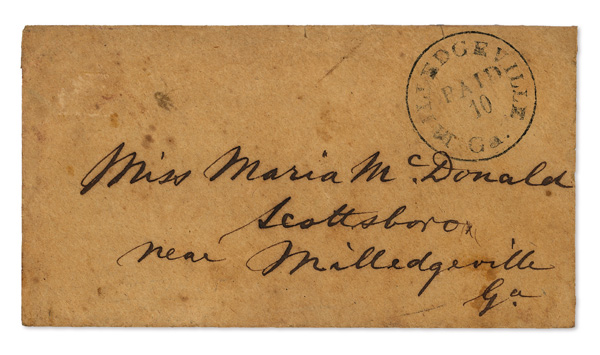 MILLEDGEVILLE
PAID
10
Ga.
Miss Maria McDonald
Scottsboro
near Milledgeville
Ga